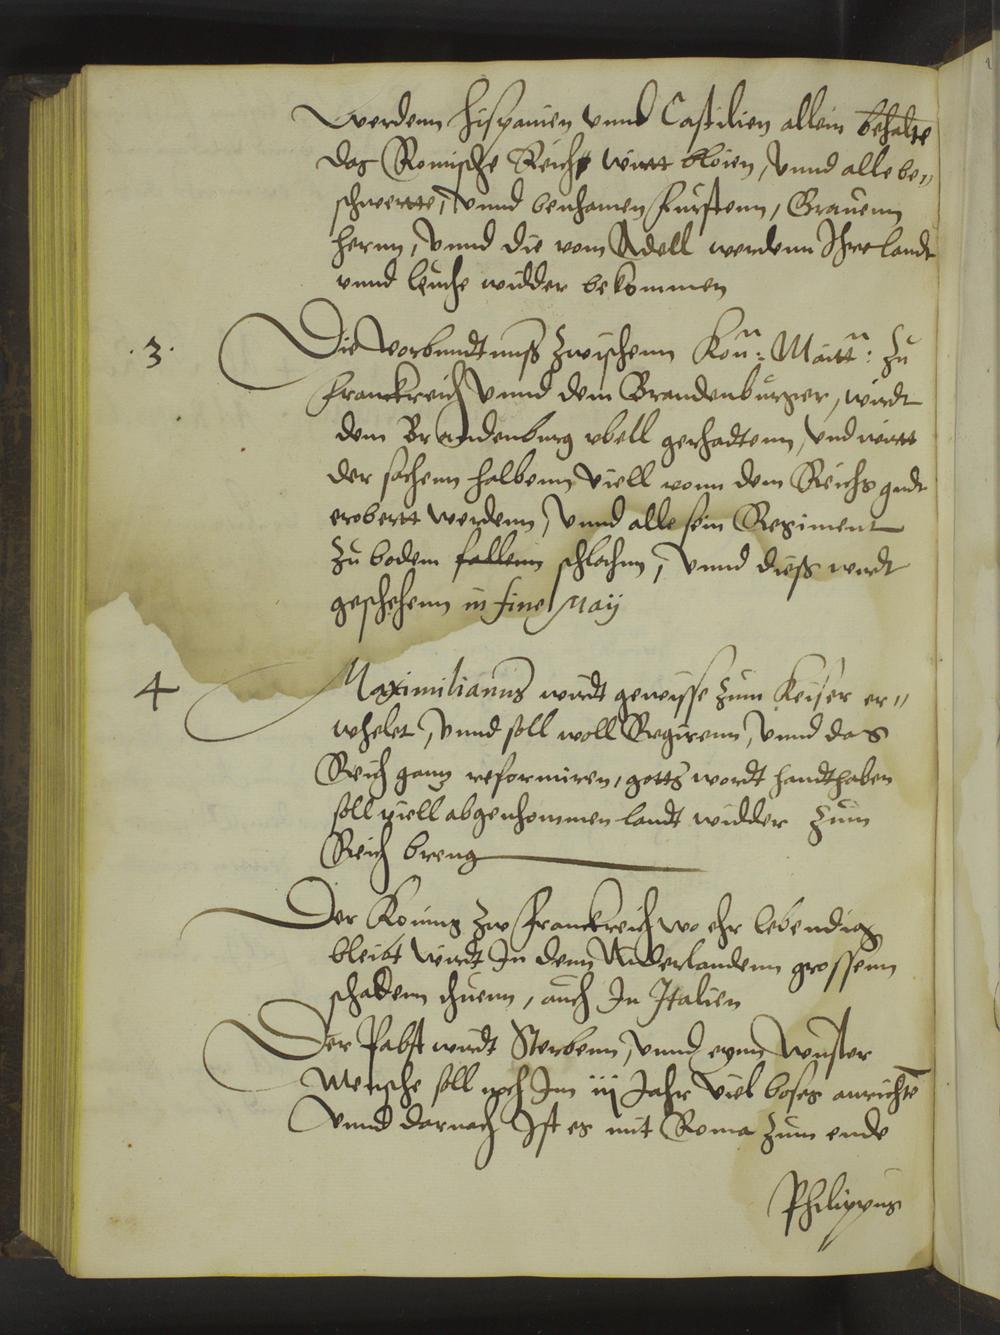 werdenn Hispanien vnnd Castilien allein behalte
das Romische Reich wirtt bloien, vnnd alle be„
schwertte, vnnd benhamen Furstenn, Grauenn
Hernn, vnnd die vom Adell werdenn Ihre landt
vnnd leuthe widder bekommen
.3. Die vorbundtnuß zwischenn Kon: Maitt: zu
Franckreich vnnd dem Brandenburger, wirdt
dem Brandenburg vbell gerhadtenn, vnd wirtt
der sachenn halbenn viell vonn dem Reichs gudt
erobertt werdenn, vnnd alle sein Regiment
zu bodem fallenn schlahnn, vnnd dieß wirdt
geschehenn in fine Maij
4 Maximilianus wirdt gewisse zum Keiser er„
whelet, vnnd soll woll Regirenn, vnnd das
Reich ganz reformiren, gotts wordt handthaben
soll viell abgenhommen landt widder zum
Reich breng
Der Konnig zw Franckreich wo ehr lebendig
bleibt wirdt In denn Niderlandenn grossenn
schadenn thuenn, auch In Italien
Der Pabst wirdt Sterbenn, vnnd eynn wuster
Mensche soll noch Im iij Jahr viel boses anrichte
vnnd darnach Ist es mit Roma zum ende
Philippus